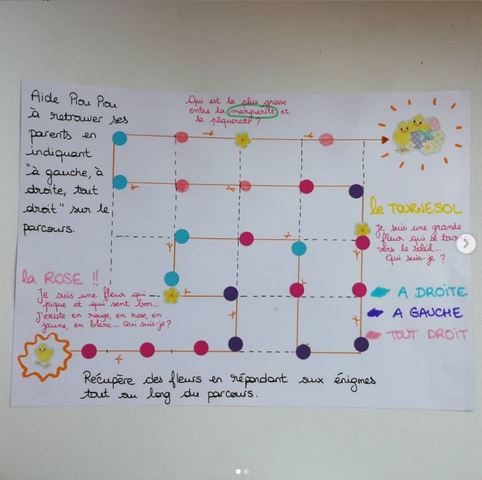 Aide Piou Piou
à retrouver ses
parents en
indiquant
"à gauche, à
droite, tout
droit" sur le
parcours.
Qui est la plus grosse
entre la marguerite et
la pâquerette ?
le TOURNESOL
Je suis une grande
fleur qui se tourne
vers le soleil...
Qui suis-je ?
la ROSE !!
Je suis une fleur qui
pique et qui sent bon...
J'existe en rouge, en rose, en
jaune, en blanc... Qui suis-je ?
A DROITE
A GAUCHE
TOUT DROIT
Récupère des fleurs en répondant aux énigmes
tout au long du parcours.